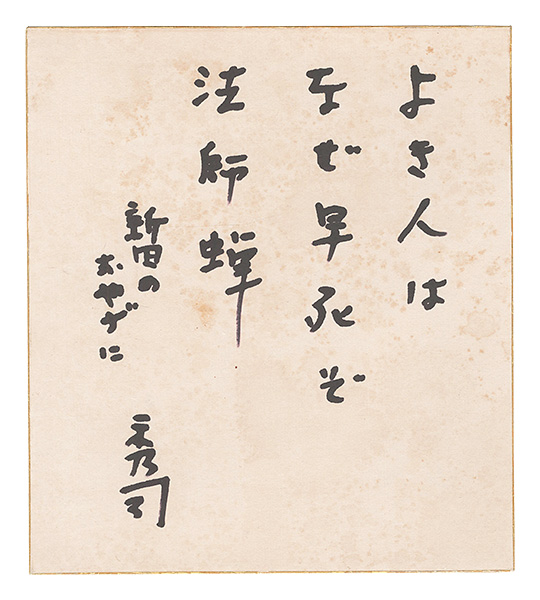 よき人は
なぜ早死ぞ
法師蝉
新田の
おやぢに
秀司